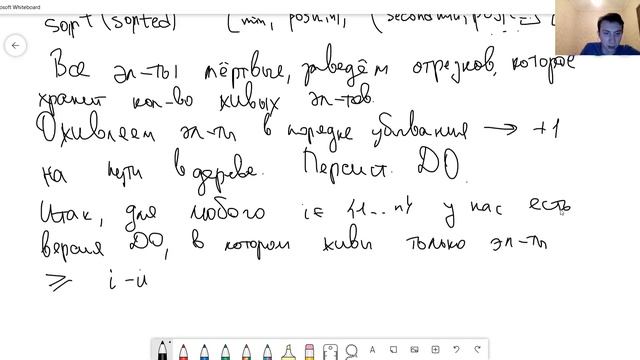 osoft Whiteboard
sort (sorted) (min, posmin), (secondmin, pos
Все эл-ты мёртвые, заведём отрезков, которое
хранит кол-во живых эл-тов.
Оживляем эл-ты в порядке убывания → +1
на пути в дереве. Персист. ДО.
Итак, для любого i ∈ {1...n} у нас есть
версия ДО, в котором живы только эл-ты
≥ i-й